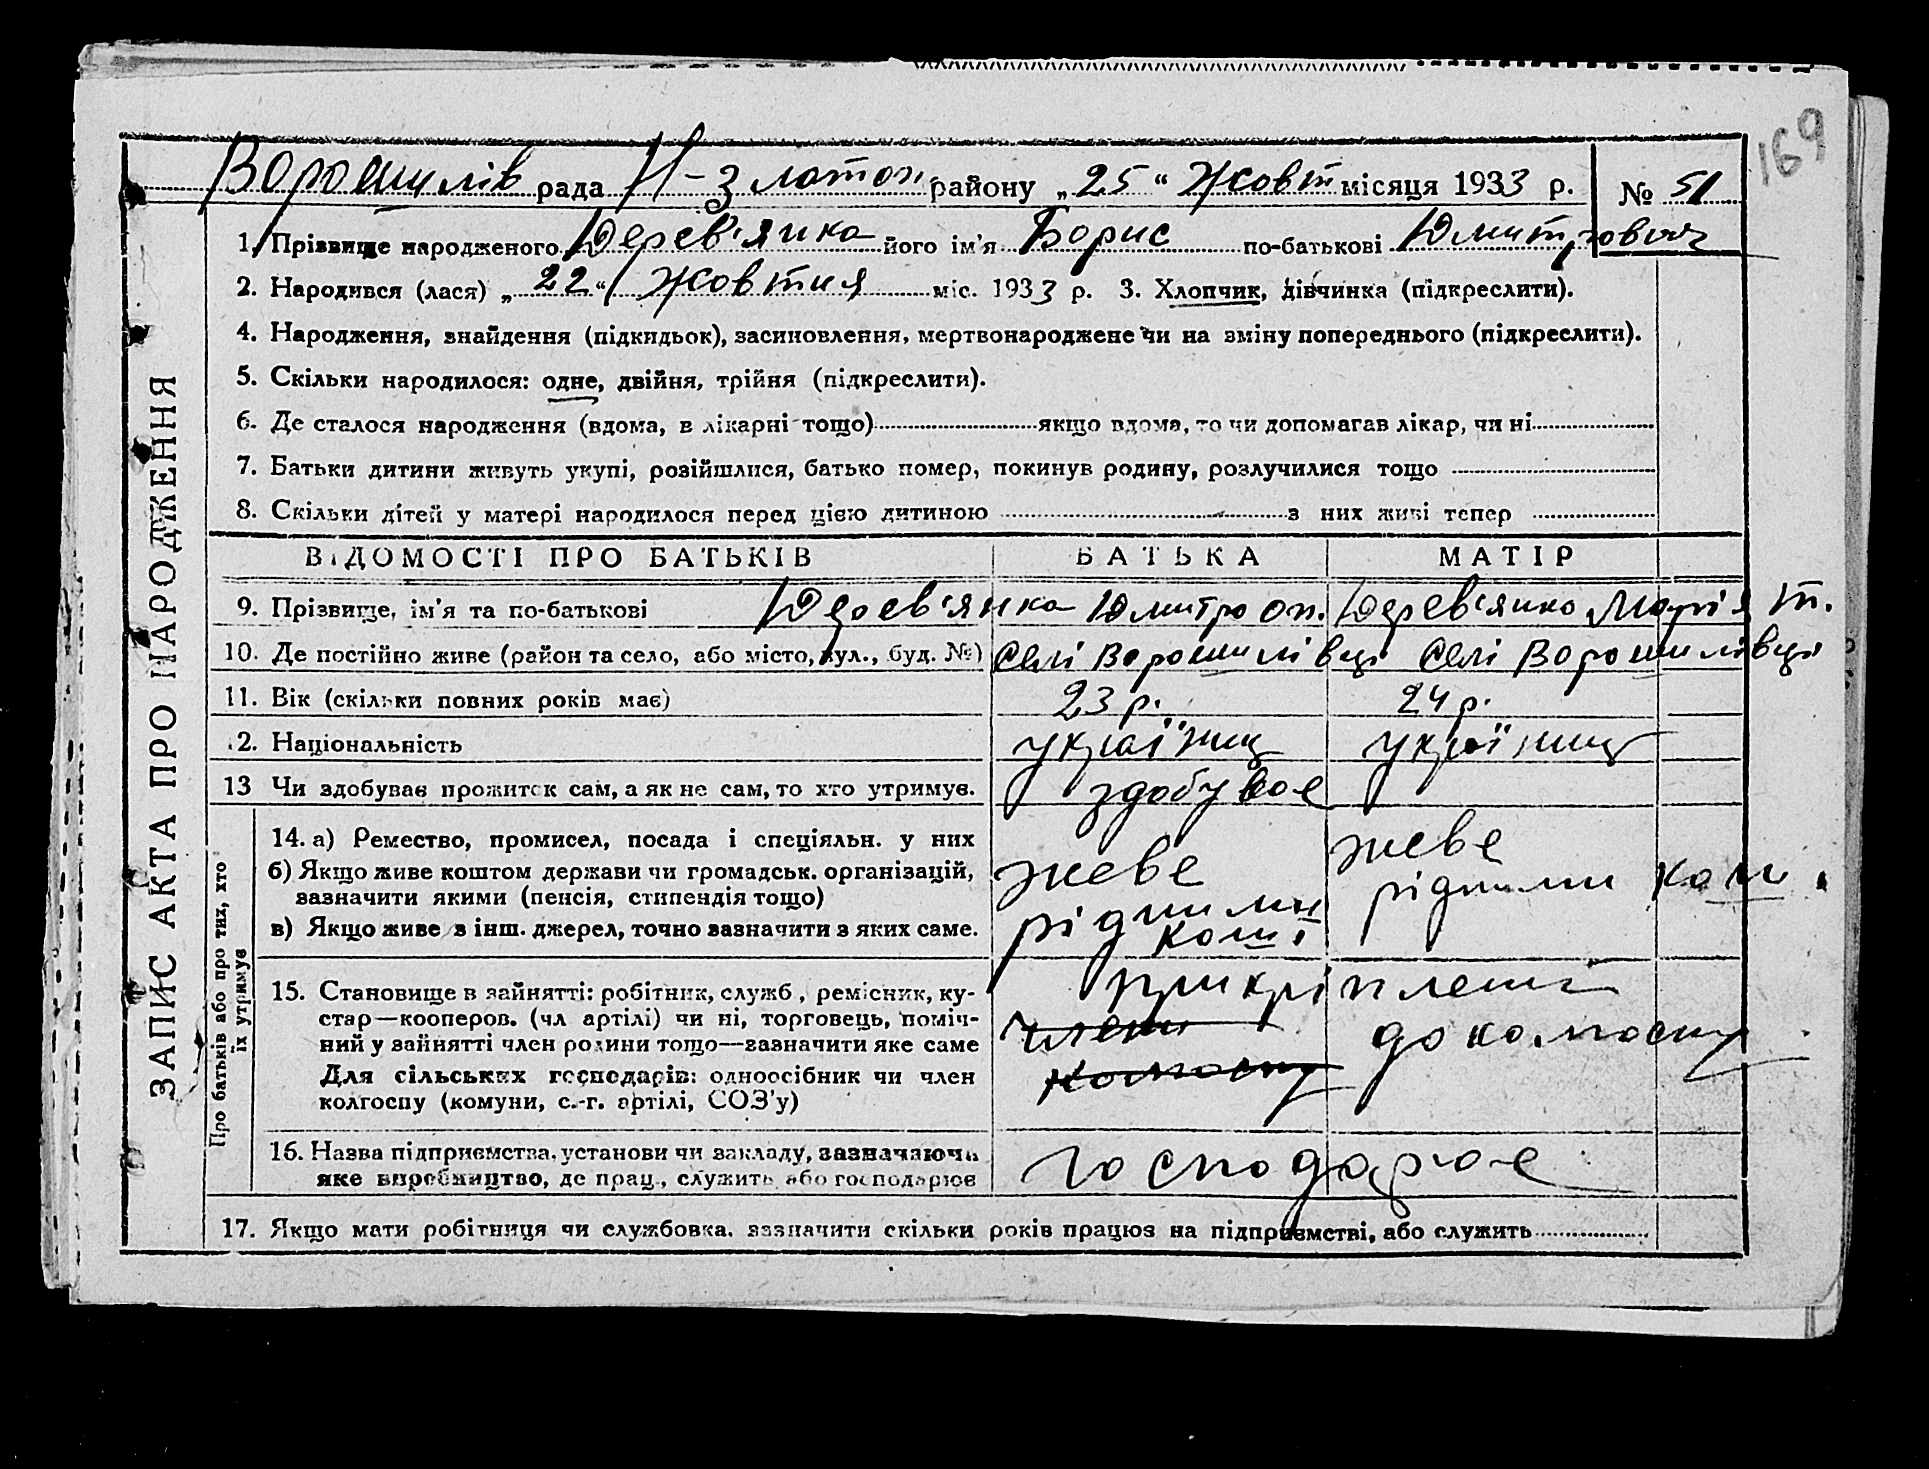 169
Ворошилів рада Н-Златоп. району „25“ Жовт місяця 1933 р. № 51
1. Прізвище народженого Дерев'янка його ім'я Борис по-батькові Дмитрович
2. Народився (лася) „22“ Жовтня міс. 1933 р. 3. Хлопчик, дівчинка (підкреслити).
4. Народження, знайдення (підкидьок), засиновлення, мертвонароджене чи на зміну попереднього (підкреслити).
5. Скільки народилося: одне, двійня, трійня (підкреслити).
6. Де сталося народження (вдома, в лікарні тощо) якщо вдома, то чи допомагав лікар, чи ні
7. Батьки дитини живуть укупі, розійшлися, батько помер, покинув родину, розлучилися тощо
8. Скільки дітей у матері народилося перед цією дитиною з них живі тепер
ЗАПИС АКТА ПРО НАРОДЖЕННЯ
ВІДОМОСТІ ПРО БАТЬКІВ БАТЬКА МАТІР
9. Прізвище, ім'я та по-батькові Дерев'янка Дмитро Оп. Дерев'янко Марія Т.
10. Де постійно живе (район та село, або місто, вул., буд. №) Селі Ворошилівці Селі Ворошилівці
11. Вік (скільки повних років має) 23 р. 24 р.
12. Національність українц українц
13 Чи здобуває прожиток сам, а як не сам, то хто утримує. здобуває
Про батьків або про тих, хто
їх утримує
14. а) Ремество, промисел, посада і спеціяльн. у них
б) Якщо живе коштом держави чи громадськ. організацій,
зазначити якими (пенсія, стипендія тощо)
в) Якщо живе з інш. джерел, точно зазначити з яких саме.
жеве
рідними
кош
жеве
рідними кош.
15. Становище в зайнятті: робітник, служб., ремісник, ку-
стар—кооперов. (чл артілі) чи ні, торговець, поміч-
ний у зайнятті член родини тощо—зазначити яке саме
Для сільських господарів: одноосібник чи член
колгоспу (комуни, с.-г. артілі, СОЗ'у)
прикріплені
члени до колгоспу
колгоспу
16. Назва підприємства, установи чи закладу, зазначаючи
яке виробництво, де прац., служить або господарює
господарює
17. Якщо мати робітниця чи службовка, зазначити скільки років працює на підприємстві, або служить